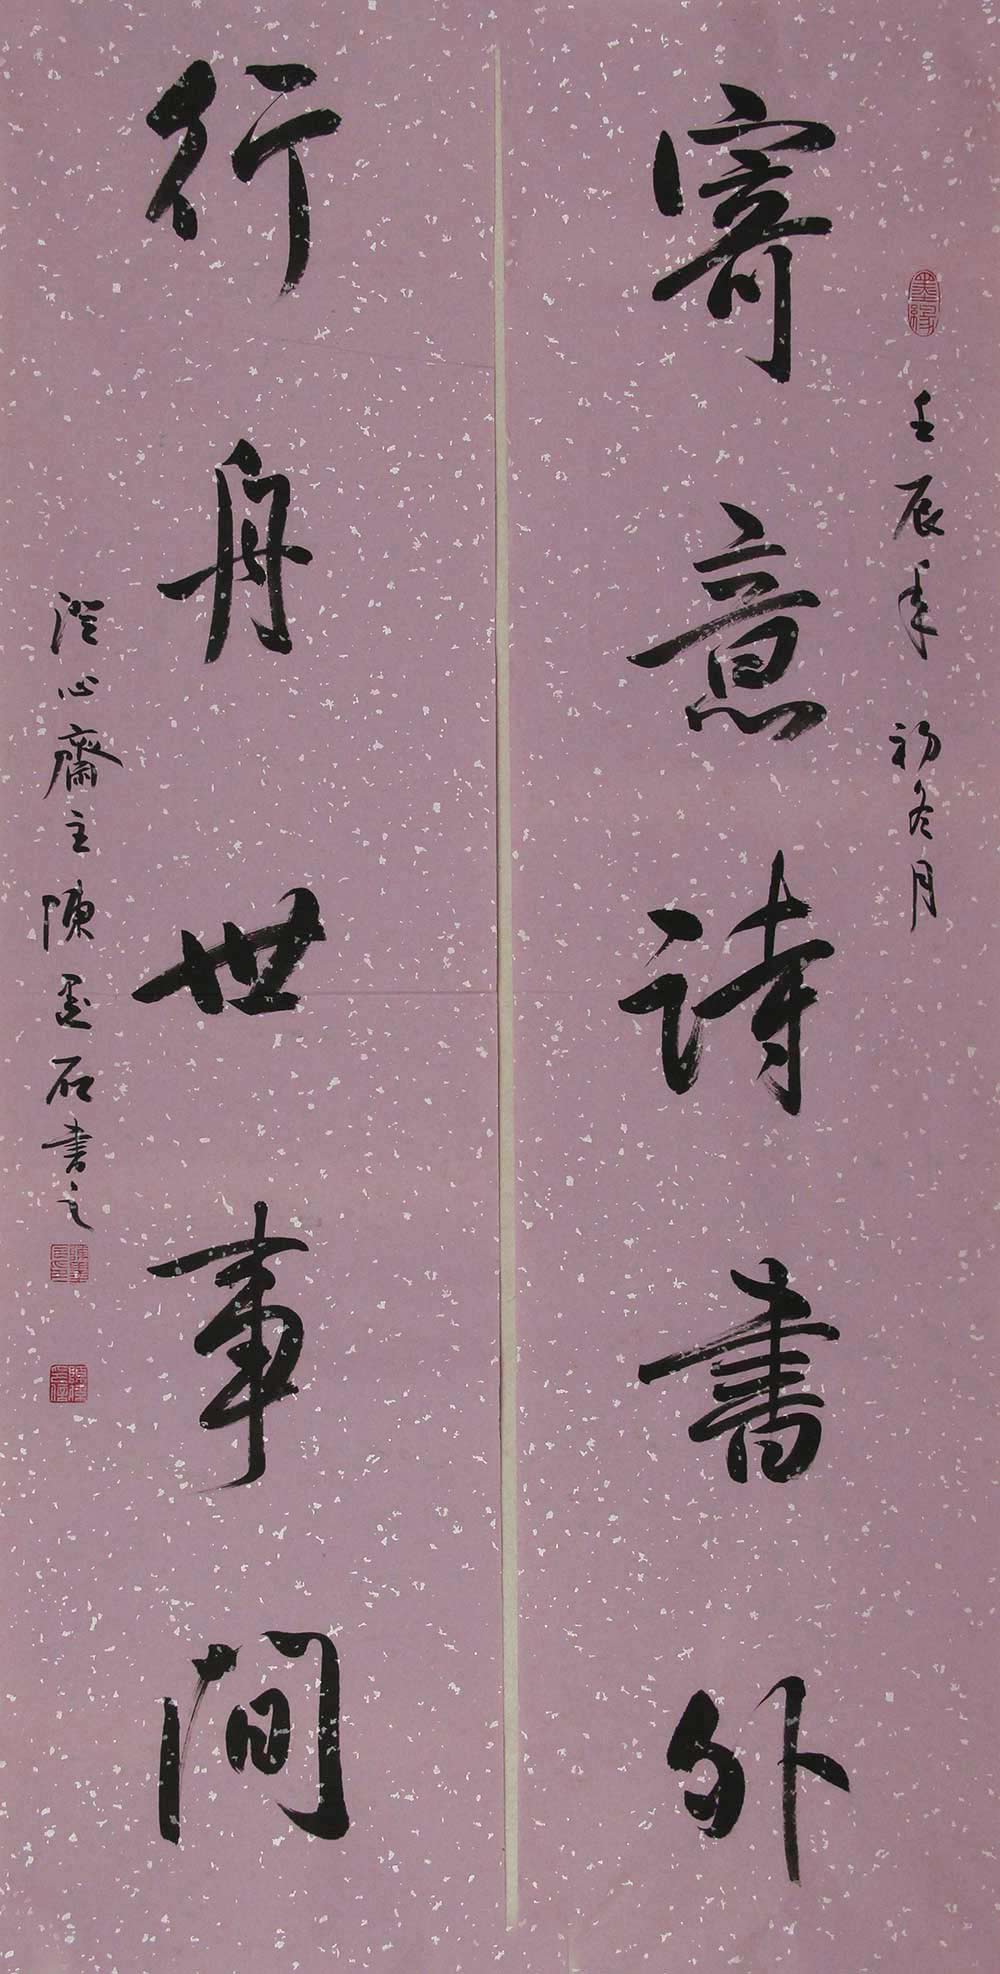 墨緣
壬辰年初冬月
寄意詩書外
行舟世事間
澄心齋主陳墨石書之